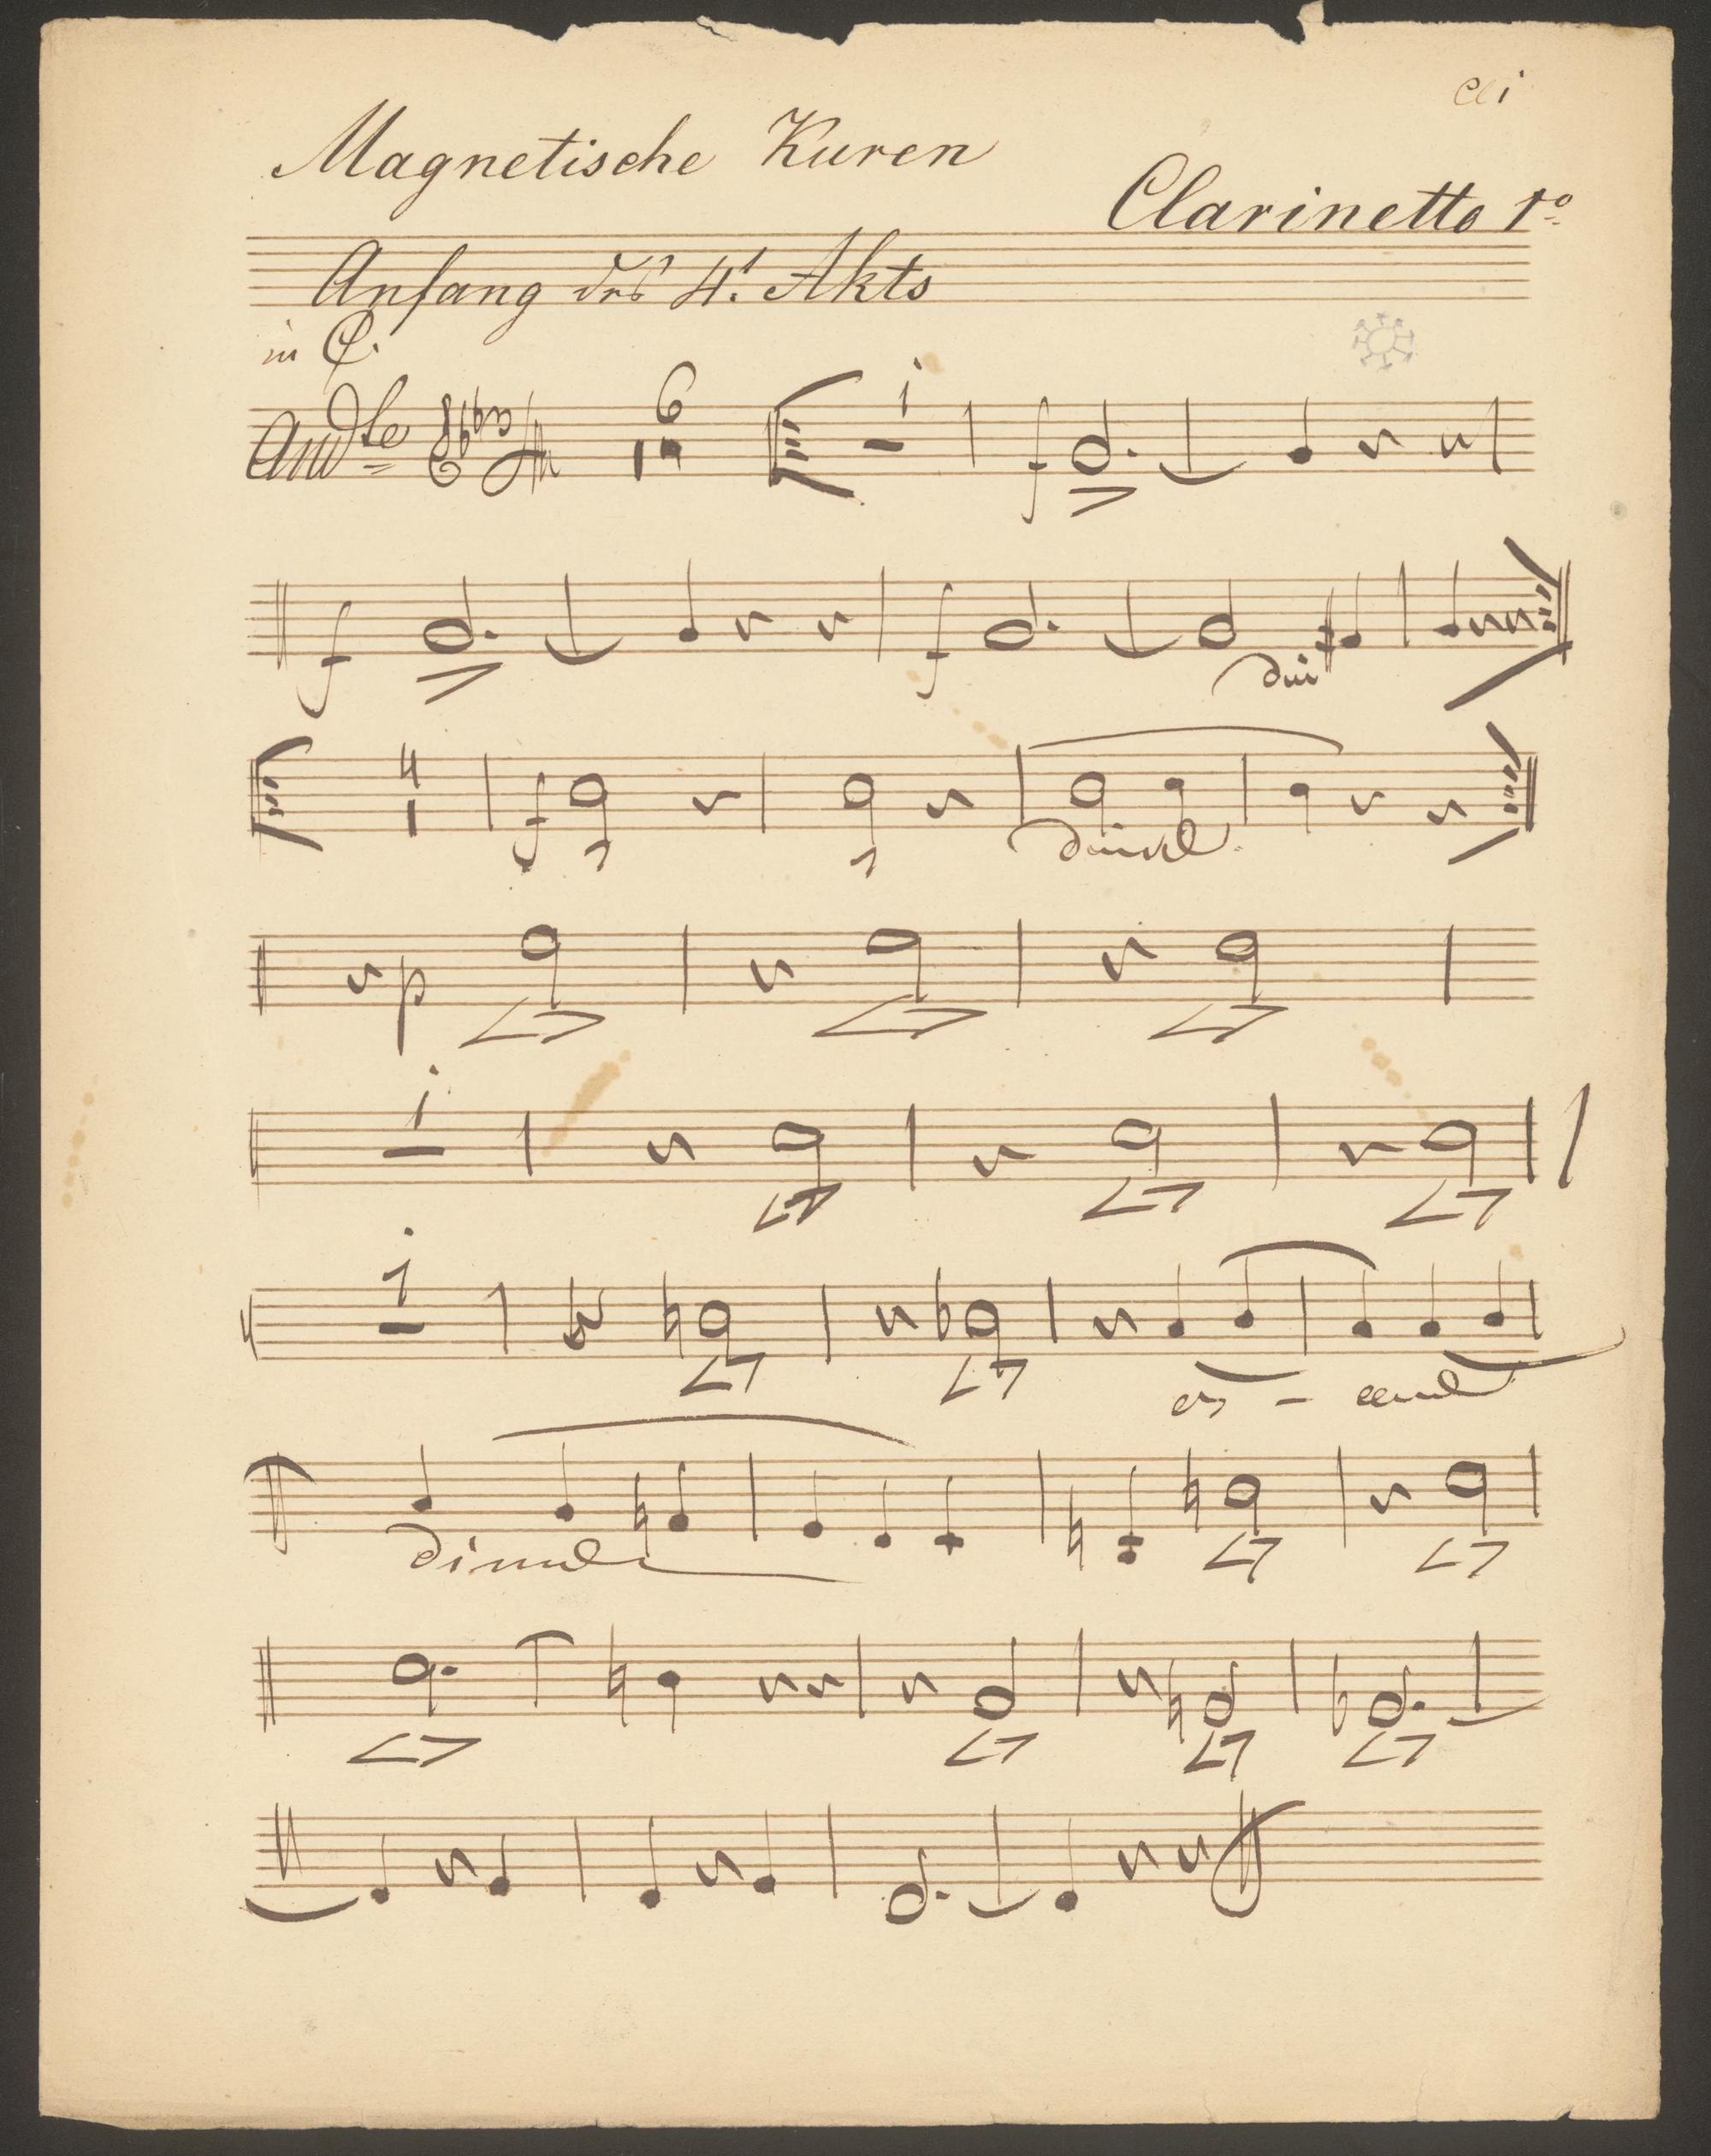 Magnetische Kuren
Clarinetto 1º
Anfang des 4t. Akts
in C.
Andte 6 1
f
f f dim
4 f dimel
p
1
1 cres - cend
dimel